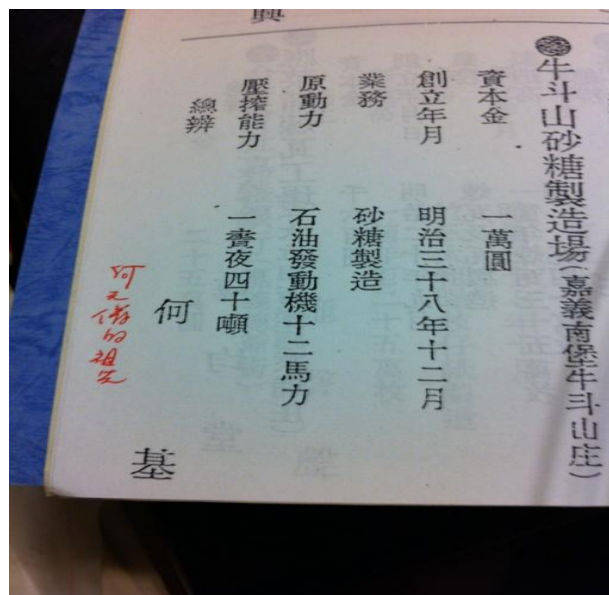 興
牛斗山砂糖製造場(嘉義南堡牛斗山庄)
資本金 一萬圓
創立年月 明治三十八年十二月
業務 砂糖製造
原動力 石油發動機十二馬力
壓搾能力 一晝夜四十噸
總辨 何 基
何元傑的祖先